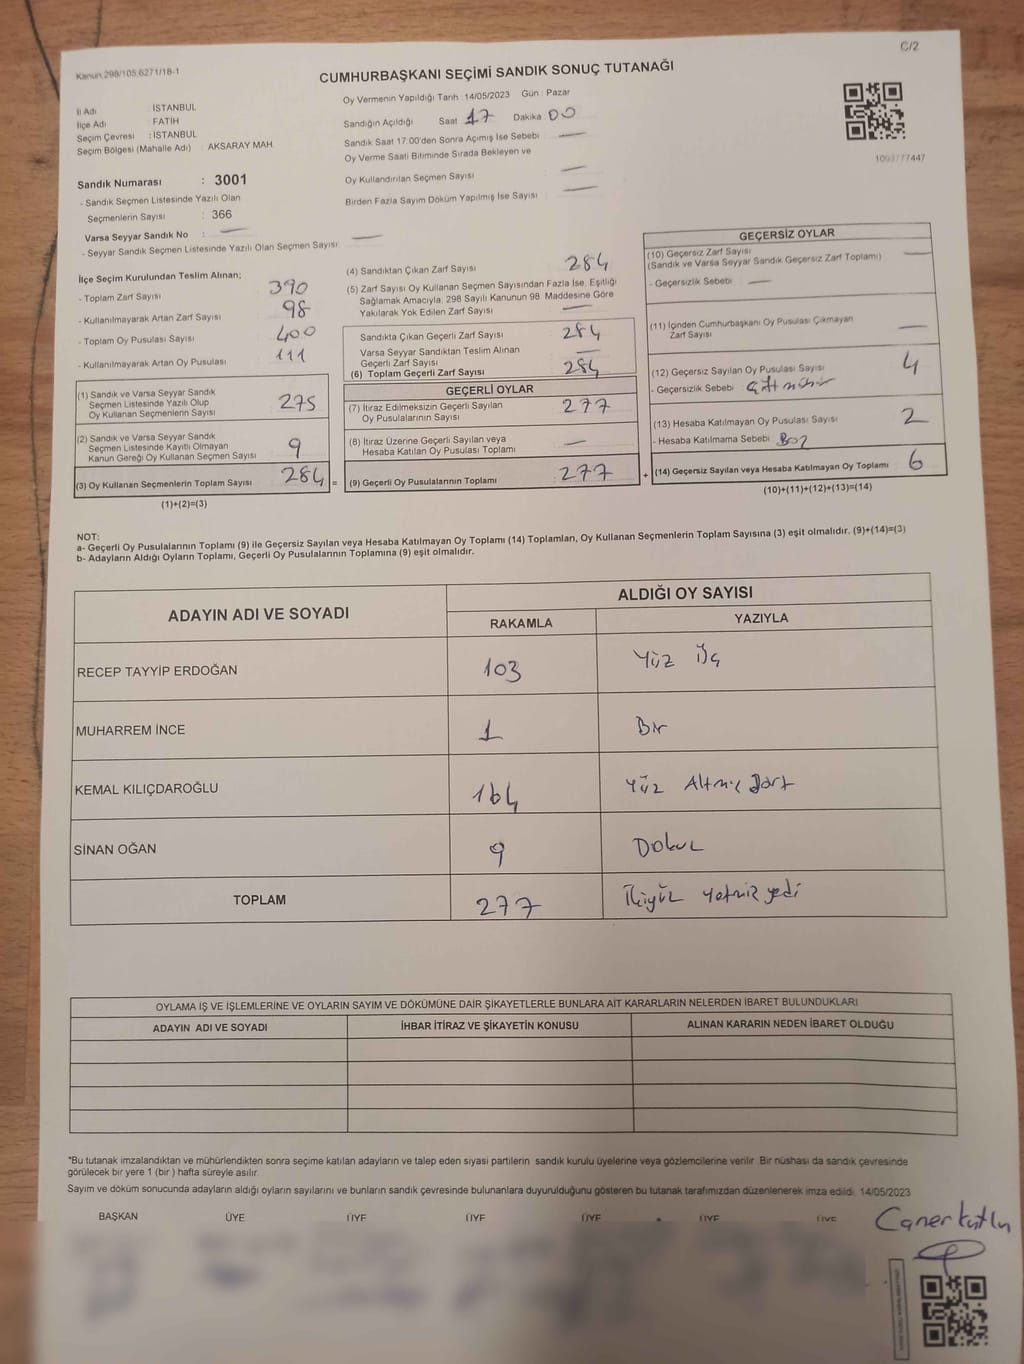 C/2
Kanun.298/105,6271/18-1
CUMHURBAŞKANI SEÇİMİ SANDIK SONUÇ TUTANAĞI
İl Adı : İSTANBUL
İlçe Adı : FATİH
Seçim Çevresi : İSTANBUL
Seçim Bölgesi (Mahalle Adı) : AKSARAY MAH.
Oy Vermenin Yapıldığı Tarih : 14/05/2023 Gün : Pazar
Sandığın Açıldığı Saat : 17 Dakika : 00
Sandık Saat 17:00'den Sonra Açımış İse Sebebi : —
Oy Verme Saati Bitiminde Sırada Bekleyen ve
Oy Kullandırılan Seçmen Sayısı : —
Birden Fazla Sayım Döküm Yapılmış İse Sayısı : —
1093777447
Sandık Numarası : 3001
- Sandık Seçmen Listesinde Yazılı Olan
Seçmenlerin Sayısı : 366
Varsa Seyyar Sandık No : —
- Seyyar Sandık Seçmen Listesinde Yazılı Olan Seçmen Sayısı: —
İlçe Seçim Kurulundan Teslim Alınan;
- Toplam Zarf Sayısı : 390
- Kullanılmayarak Artan Zarf Sayısı : 98
- Toplam Oy Pusulası Sayısı : 400
- Kullanılmayarak Artan Oy Pusulası : 111
(1) Sandık ve Varsa Seyyar Sandık
Seçmen Listesinde Yazılı Olup
Oy Kullanan Seçmenlerin Sayısı : 275
(2) Sandık ve Varsa Seyyar Sandık
Seçmen Listesinde Kayıtlı Olmayan
Kanun Gereği Oy Kullanan Seçmen Sayısı : 9
(3) Oy Kullanan Seçmenlerin Toplam Sayısı : 284 =
(1)+(2)=(3)
(4) Sandıktan Çıkan Zarf Sayısı : 284
(5) Zarf Sayısı Oy Kullanan Seçmen Sayısından Fazla İse, Eşitliği
Sağlamak Amacıyla, 298 Sayılı Kanunun 98. Maddesine Göre
Yakılarak Yok Edilen Zarf Sayısı : —
Sandıkta Çıkan Geçerli Zarf Sayısı : 284
Varsa Seyyar Sandıktan Teslim Alınan
Geçerli Zarf Sayısı : —
(6) Toplam Geçerli Zarf Sayısı : 284
GEÇERLİ OYLAR
(7) İtiraz Edilmeksizin Geçerli Sayılan
Oy Pusulalarının Sayısı : 277
(8) İtiraz Üzerine Geçerli Sayılan veya
Hesaba Katılan Oy Pusulası Toplamı : —
(9) Geçerli Oy Pusulalarının Toplamı : 277 +
GEÇERSİZ OYLAR
(10) Geçersiz Zarf Sayısı
(Sandık ve Varsa Seyyar Sandık Geçersiz Zarf Toplamı) : —
- Geçersizlik Sebebi : —
(11) İçinden Cumhurbaşkanı Oy Pusulası Çıkmayan
Zarf Sayısı : —
(12) Geçersiz Sayılan Oy Pusulası Sayısı : 4
- Geçersizlik Sebebi : Çift mühür
(13) Hesaba Katılmayan Oy Pusulası Sayısı : 2
- Hesaba Katılmama Sebebi : Boş
(14) Geçersiz Sayılan veya Hesaba Katılmayan Oy Toplamı : 6
(10)+(11)+(12)+(13)=(14)
NOT:
a- Geçerli Oy Pusulalarının Toplamı (9) ile Geçersiz Sayılan veya Hesaba Katılmayan Oy Toplamı (14) Toplamları, Oy Kullanan Seçmenlerin Toplam Sayısına (3) eşit olmalıdır. (9)+(14)=(3)
b- Adayların Aldığı Oyların Toplamı, Geçerli Oy Pusulalarının Toplamına (9) eşit olmalıdır.
ADAYIN ADI VE SOYADI ALDIĞI OY SAYISI
RAKAMLA YAZIYLA
RECEP TAYYİP ERDOĞAN 103 Yüz Üç
MUHARREM İNCE 1 Bir
KEMAL KILIÇDAROĞLU 164 Yüz Altmış Dört
SİNAN OĞAN 9 Dokuz
TOPLAM 277 İkiyüz yetmiş yedi
OYLAMA İŞ VE İŞLEMLERİNE VE OYLARIN SAYIM VE DÖKÜMÜNE DAİR ŞİKAYETLERLE BUNLARA AİT KARARLARIN NELERDEN İBARET BULUNDUKLARI
ADAYIN ADI VE SOYADI İHBAR İTİRAZ VE ŞİKAYETİN KONUSU ALINAN KARARIN NEDEN İBARET OLDUĞU
*Bu tutanak imzalandıktan ve mühürlendikten sonra seçime katılan adayların ve talep eden siyasi partilerin sandık kurulu üyelerine veya gözlemcilerine verilir. Bir nüshası da sandık çevresinde
görülecek bir yere 1 (bir) hafta süreyle asılır.
Sayım ve döküm sonucunda adayların aldığı oyların sayılarını ve bunların sandık çevresinde bulunanlara duyurulduğunu gösteren bu tutanak tarafımızdan düzenlenerek imza edildi. 14/05/2023
BAŞKAN ÜYE ÜYE ÜYE ÜYE ÜYE ÜYE
Caner Kutlu